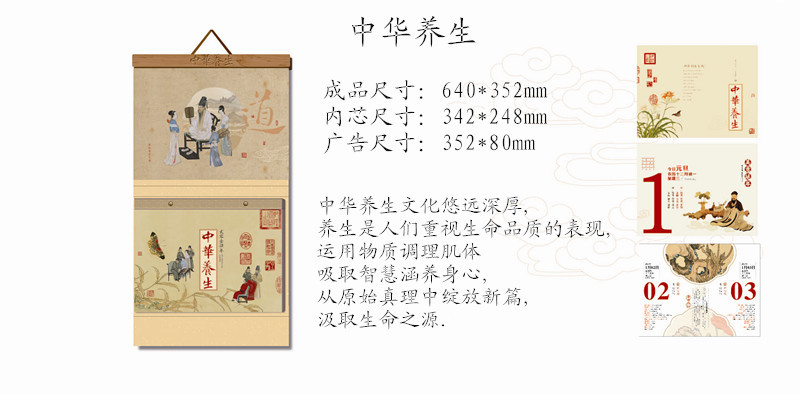 中华养生
成品尺寸: 640*352mm
内芯尺寸: 342*248mm
广告尺寸: 352*80mm
中华养生文化悠远深厚,
养生是人们重视生命品质的表现,
运用物质调理肌体
吸取智慧涵养身心,
从原始真理中绽放新篇,
汲取生命之源.
中華養生
道
中華養生
中華養生
1
02
03